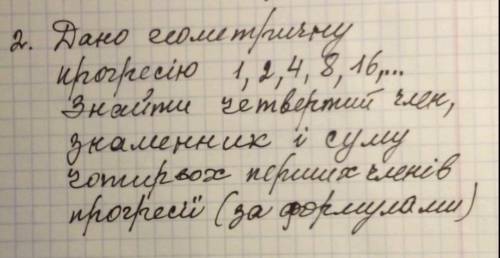 2. Дано геометричну
прогресію 1, 2, 4, 8, 16,...
Знайти четвертий член,
знаменник і суму
чотирьох перших членів
прогресії (за формулами)